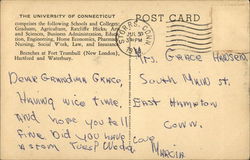 THE UNIVERSITY OF CONNECTICUT
comprises the following Schools and Colleges:
Graduate, Agriculture, Ratcliffe Hicks, Arts
and Sciences, Business Administration, Education,
Engineering, Home Economics, Pharmacy,
Nursing, Social Work, Law, and Insurance.
Branches at Fort Trumbull (New London),
Hartford and Waterbury.
POST CARD
STORRS, CONN.
JUL 30
PM
Mrs. Grace Hansen
South Main St.
East Hampton
Conn.
Dear Grandma Grace,
Having nice time,
and hope you fell
fine. Did you have
a storm Tues? Weda
Love
Marcia